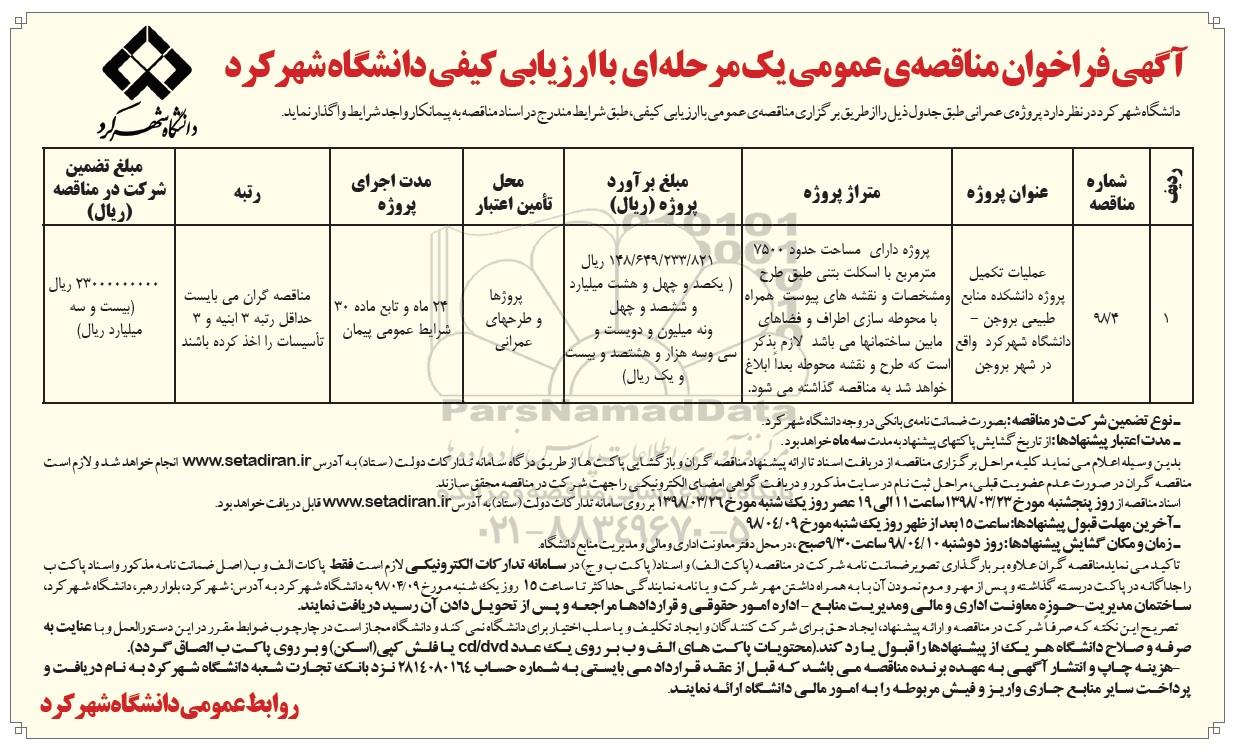 آگهی فراخوان مناقصه‌ی عمومی یک مرحله‌ای با ارزیابی کیفی دانشگاه شهرکرد
دانشگاه شهرکرد
دانشگاه شهرکرد در نظر دارد پروژه‌ی عمرانی طبق جدول ذیل را از طریق برگزاری مناقصه‌ی عمومی با ارزیابی کیفی، طبق شرایط مندرج در اسناد مناقصه به پیمانکار واجد شرایط واگذار نماید.
ردیف
شماره
مناقصه
عنوان پروژه
متراژ پروژه
مبلغ برآورد
پروژه (ریال)
محل
تأمین اعتبار
مدت اجرای
پروژه
رتبه
مبلغ تضمین
شرکت در مناقصه
(ریال)
۱
۹۸/۴
عملیات تکمیل
پروژه دانشکده منابع
طبیعی بروجن –
دانشگاه شهرکرد واقع
در شهر بروجن
پروژه دارای مساحت حدود ۷۵۰۰
مترمربع با اسکلت بتنی طبق طرح
ومشخصات و نقشه های پیوست همراه
با محوطه سازی اطراف و فضاهای
مابین ساختمانها می باشد لازم بذکر
است که طرح و نقشه محوطه بعداً ابلاغ
خواهد شد به مناقصه گذاشته می شود.
۱۴۸/۶۴۹/۲۳۳/۸۲۱ ریال
( یکصد و چهل و هشت میلیارد
و ششصد و چهل
ونه میلیون و دویست و
سی وسه هزار و هشتصد و بیست
و یک ریال)
پروژها
و طرحهای
عمرانی
۲۴ ماه و تابع ماده ۳۰
شرایط عمومی پیمان
مناقصه گران می بایست
حداقل رتبه ۳ ابنیه و ۳
تأسیسات را اخذ کرده باشند
۲۳۰۰۰۰۰۰۰۰۰ ریال
(بیست و سه
میلیارد ریال)
ParsNamadData
ـ نوع تضمین شرکت در مناقصه: بصورت ضمانت نامه‌ی بانکی در وجه دانشگاه شهرکرد.
ـ مدت اعتبار پیشنهادها: از تاریخ گشایش پاکتهای پیشنهاد به مدت سه ماه خواهد بود.
بدین وسیله اعلام می نماید کلیه مراحل برگزاری مناقصه از دریافت اسناد تا ارائه پیشنهاد مناقصه گران و بازگشایی پاکت ها از طریق درگاه سامانه تدارکات دولت (ستاد) به آدرس www.setadiran.ir انجام خواهد شد و لازم است
مناقصه گران در صورت عدم عضویت قبلی، مراحل ثبت نام در سایت مذکور و دریافت گواهی امضای الکترونیکی را جهت شرکت در مناقصه محقق سازند.
اسناد مناقصه از روز پنجشنبه مورخ ۱۳۹۸/۰۳/۲۳ ساعت ۱۱ الی ۱۹ عصر روز یک شنبه مورخ ۱۳۹۸/۰۳/۲۶ بر روی سامانه تدارکات دولت (ستاد) به آدرس www.setadiran.ir قابل دریافت خواهد بود.
ـ آخرین مهلت قبول پیشنهادها: ساعت ۱۵ بعد از ظهر روز یک شنبه مورخ ۹۸/۰۴/۰۹
۰۲۱-۸۸۳۴۹۶۷۰-۵
ـ زمان و مکان گشایش پیشنهادها: روز دوشنبه ۹۸/۰۴/۱۰ ساعت ۹/۳۰ صبح، در محل دفتر معاونت اداری و مالی و مدیریت منابع دانشگاه.
تاکید می نماید مناقصه گران علاوه بر بارگذاری تصویر ضمانت نامه شرکت در مناقصه (پاکت الف) و اسناد (پاکت ب و ج) در سامانه تدارکات الکترونیکی لازم است فقط پاکات الف و ب (اصل ضمانت نامه مذکور و اسناد پاکت ب
را جداگانه در پاکت در بسته گذاشته و پس از مهر و موم نمودن آن با به همراه داشتن مهر شرکت و یا نامه نمایندگی حداکثر تا ساعت ۱۵ روز یک شنبه مورخ ۹۸/۰۴/۰۹ به دانشگاه شهرکرد به آدرس: شهرکرد، بلوار رهبر، دانشگاه شهرکرد،
ساختمان مدیریت-حوزه معاونت اداری و مالی ومدیریت منابع – اداره امور حقوقی و قراردادها مراجعه و پس از تحویل دادن آن رسید دریافت نمایند.
تصریح این نکته که صرفاً شرکت در مناقصه و ارائه پیشنهاد، ایجاد حق برای شرکت کنندگان و ایجاد تکلیف و یا سلب اختیار برای دانشگاه نمی کند و دانشگاه مجاز است در چارچوب ضوابط مقرر در این دستورالعمل و با عنایت به
صرفه و صلاح دانشگاه هر یک از پیشنهادها را قبول یا رد کند.(محتویات پاکت های الف و ب بر روی یک عدد cd/dvd یا فلش کپی(اسکن) و بر روی پاکت ب الصاق گردد).
-هزینه چاپ و انتشار آگهی به عهده برنده مناقصه می باشد که قبل از عقد قرارداد می بایستی به شماره حساب ۲۸۱۴۰۸۰۱۶۴ نزد بانک تجارت شعبه دانشگاه شهرکرد به نام دریافت و
پرداخت سایر منابع جاری واریز و فیش مربوطه را به امور مالی دانشگاه ارائه نمایند.
روابط عمومی دانشگاه شهرکرد